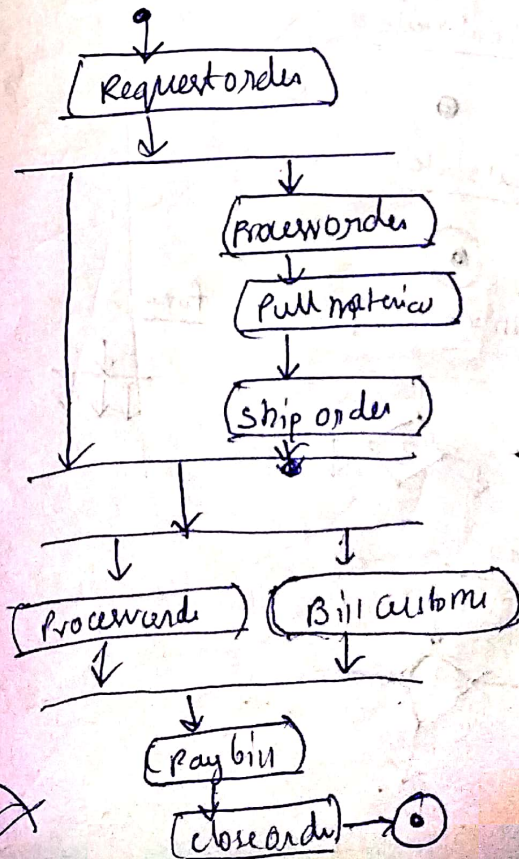 Request order
Process order
Pull material
Ship order
Process order
Bill Custome
Pay bill
close order